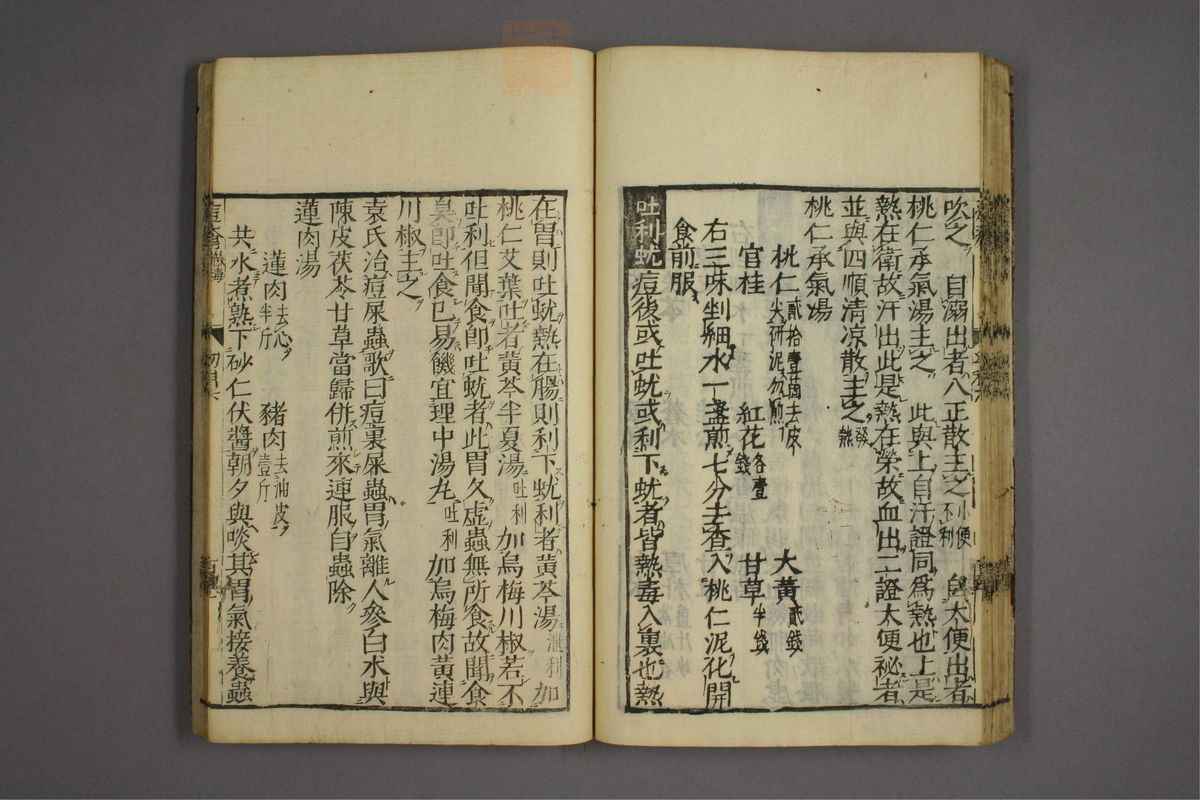 吹之 自溺出者八正散主之小便不利 自大便出者
桃仁承氣湯主之 此與上自汗證同爲熱也上是
熱在衛故汗出此是熱在榮故血出二證大便秘者
並與四順清凉散主之發熱
桃仁承氣湯
桃仁貳拾壹箇去皮尖研泥勿煎 大黃貳錢
官桂 紅花各壹錢 甘草半錢
右三味剉細水一盞煎七分去查入桃仁泥化開
食前服
吐利蚘 痘後或吐蚘或利下蚘者皆熱毒入裏也熱
在胃則吐蚘熱在腸則利下蚘利者黃芩湯泄利加
桃仁艾葉吐者黃芩半夏湯吐利加烏梅川椒若不
吐利但聞食即吐蚘者此胃久虛蟲無所食故聞食
臭即吐食已易饑宜理中湯丸吐利加烏梅肉黃連
川椒主之
袁氏治痘屎蟲歌曰痘裏屎蟲胃氣離人參白朮與
陳皮茯苓甘草當歸併煎來連服自蟲除
蓮肉湯
蓮肉去心半斤 豬肉去油皮壹斤
共水煮熟下砂仁伏醬朝夕與啖其胃氣接養蟲